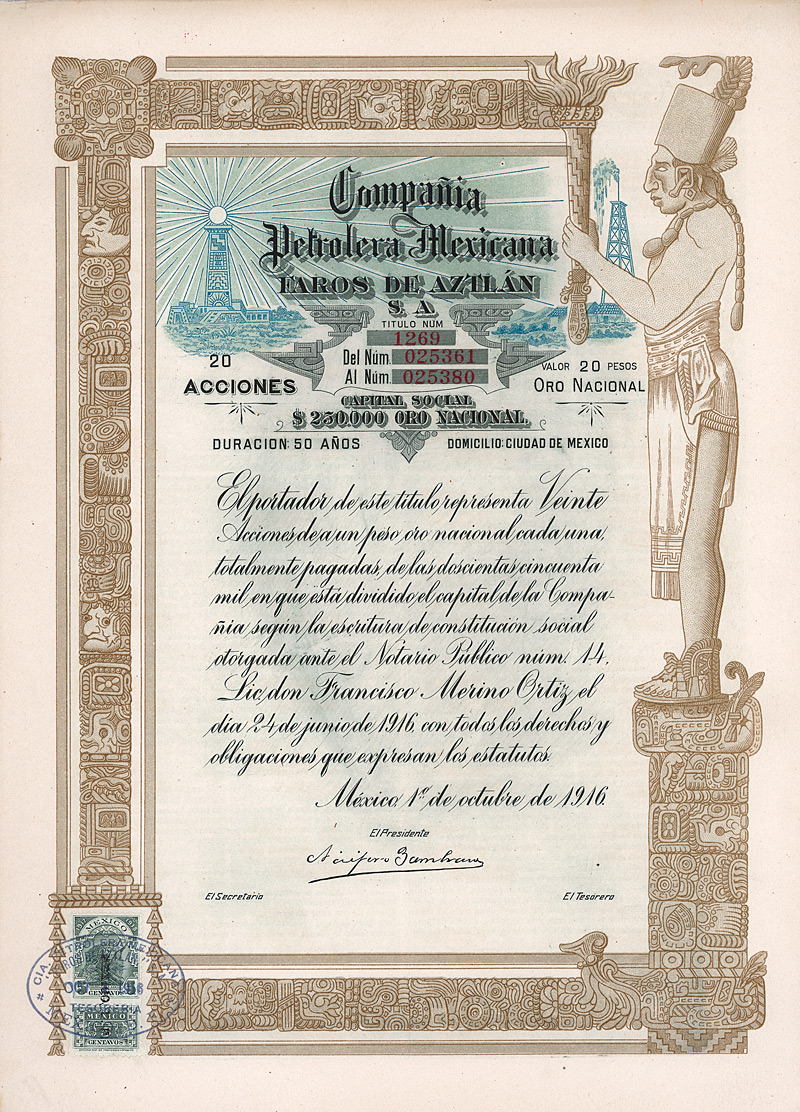 Compañia
Petrolera Mexicana
FAROS DE AZTLÁN
S. A.
TITULO NUM
1269
Del Núm. 025361
Al Núm. 025380
20
ACCIONES
VALOR 20 PESOS
ORO NACIONAL
CAPITAL SOCIAL
$ 250.000 ORO NACIONAL
DURACION: 50 AÑOS
DOMICILIO: CIUDAD DE MEXICO
El portador de este título representa Veinte
Acciones de a un peso oro nacional cada una,
totalmente pagadas, de las doscientas cincuenta
mil en que está dividido el capital de la Compa-
ñia según la escritura de constitución social
otorgada ante el Notario Público núm. 14,
Lic. don Francisco Merino Ortiz, el
día 24 de junio de 1916, con todos los derechos y
obligaciones que expresan los estatutos.
México, 1º de octubre de 1916.
El Presidente
El Secretario
El Tesorero
MEXICO
5 5
CENTAVOS
TESORERIA
MEXICO
CENTAVOS